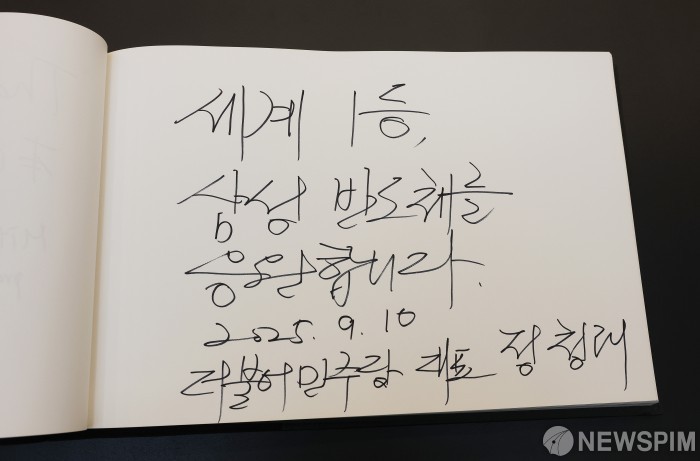 세계 1등,
삼성 반도체를
응원합니다.
2025. 9. 10
더불어민주당 대표 정청래
NEWSPIM